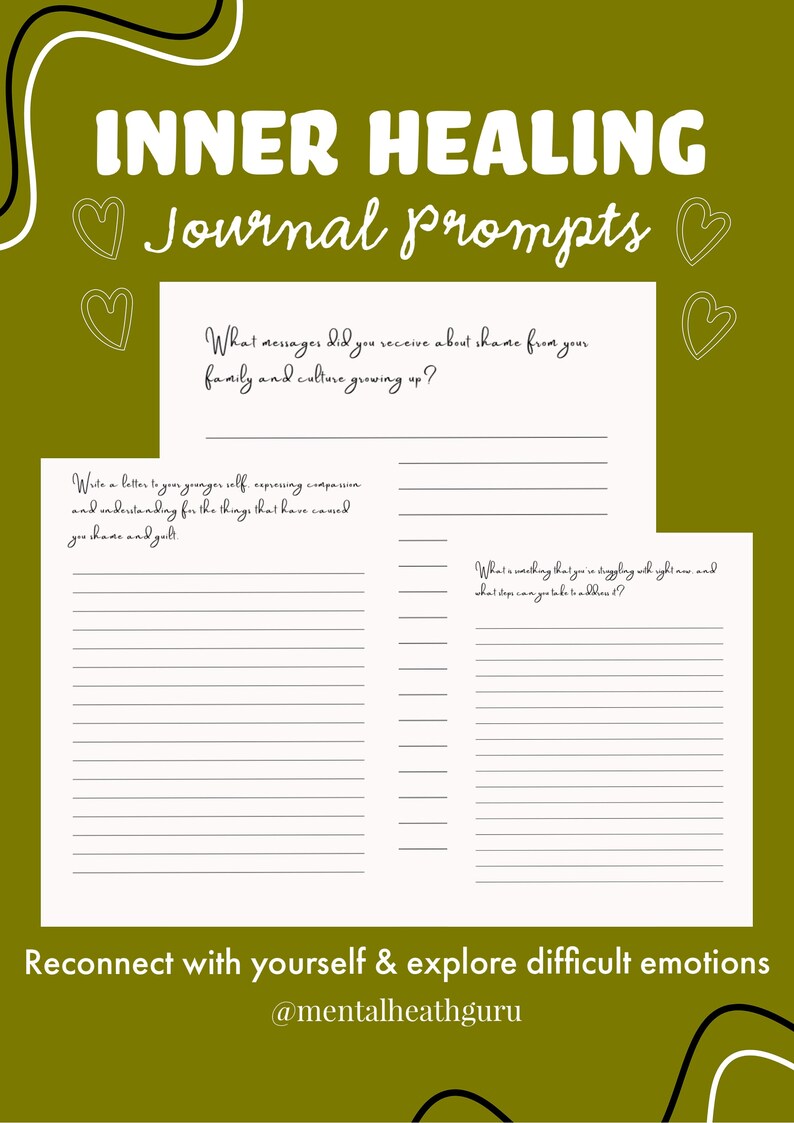 INNER HEALING
Journal Prompts
What messages did you receive about shame from your
family and culture growing up?
Write a letter to your younger self, expressing compassion
and understanding for the things that have caused
you shame and guilt.
What is something that you're struggling with right now, and
what steps can you take to address it?
Reconnect with yourself & explore difficult emotions
@mentalheathguru